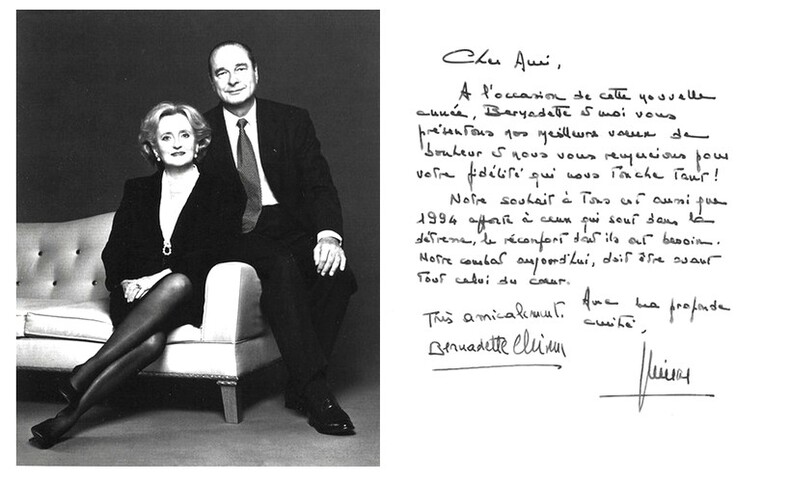 Cher Ami,
A l'occasion de cette nouvelle
année, Bernadette et moi vous
présentons nos meilleurs vœux de
bonheur et nous vous remercions pour
votre fidélité qui nous touche tant !
Notre souhait à Tous est aussi que
1994 apporte à ceux qui sont dans la
détresse, le réconfort dont ils ont besoin.
Notre combat aujourd'hui, doit être avant
tout celui du cœur.
Avec ma profonde
amitié,
Très amicalement.
Bernadette Chirac